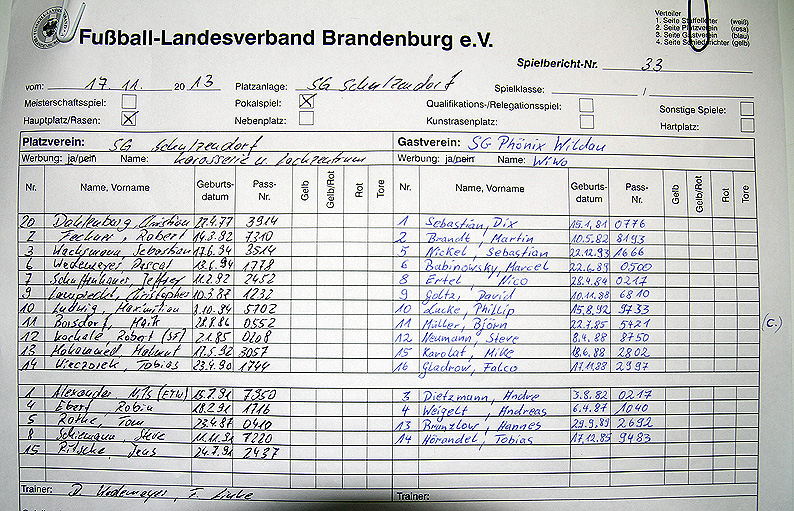 Verteiler
1. Seite Staffelleiter (weiß)
2. Seite Platzverein (rosa)
3. Seite Gastverein (blau)
4. Seite Schiedsrichter (gelb)
Fußball-Landesverband Brandenburg e.V.
Spielbericht-Nr. 33
vom: 17.11. 2013 Platzanlage: SG Schulzendorf Spielklasse: /
Meisterschaftsspiel: Pokalspiel: X Qualifikations-/Relegationsspiel: Sonstige Spiele:
Hauptplatz/Rasen: X Nebenplatz: Kunstrasenplatz: Hartplatz:
Platzverein: SG Schulzendorf Gastverein: SG Phönix Wildau
Werbung: ja/nein Name: Karosserie u. Lackzentrum Werbung: ja/nein Name: WiWo
Nr. Name, Vorname Geburts-datum Pass-Nr. Gelb Gelb/Rot Rot Tore Nr. Name, Vorname Geburts-datum Pass-Nr. Gelb Gelb/Rot Rot Tore
20 Dahlenburg, Christian 27.9.77 3914 1 Sebastian, Dix 15.1.81 0776
2 Fechner, Robert 14.3.92 7310 2 Brandt, Martin 10.5.82 8193
3 Wachsmann, Sebastian 17.6.94 3514 5 Nickel, Sebastian 22.12.93 1666
6 Wedemeyer, Pascal 13.6.94 1778 6 Babinowsky, Marcel 22.6.89 0500
7 Schaffenhauer, Jeffrey 11.2.92 2452 8 Ertel, Nico 28.4.84 0217
9 Lamprecht, Christopher 10.3.88 1232 9 Goltz, David 10.11.88 6810
10 Ludwig, Maximilian 8.10.94 5702 10 Lucke, Phillip 15.8.92 9733
11 Borsdorf, Maik 28.8.86 0552 11 Müller, Björn 22.7.85 5421 (C.)
12 Robert (SF) 2.1.85 0208 12 Neumann, Steve 8.4.88 8750
13 Mohammed, Mahmut 17.5.92 3057 15 Karolat, Mike 18.6.88 2802
14 Wieczorek, Tobias 23.4.90 1744 16 Gladrow, Falco 17.11.88 2997
1 Alexander, Nils (ETW) 15.7.91 7950 3 Dietzmann, Andre 3.8.82 0217
4 Ebert, Robin 18.2.91 1716 4 Weigelt, Andreas 6.4.87 1040
5 Rothe, Tom 23.4.87 0410 13 Brunzlow, Hannes 29.9.89 2692
8 Schiemann, Steve 11.11.91 7220 14 Hörandel, Tobias 17.12.85 9483
15 Ritsche, Jens 24.7.91 2437
Trainer: D. Wedemeyer, T. Linke Trainer: